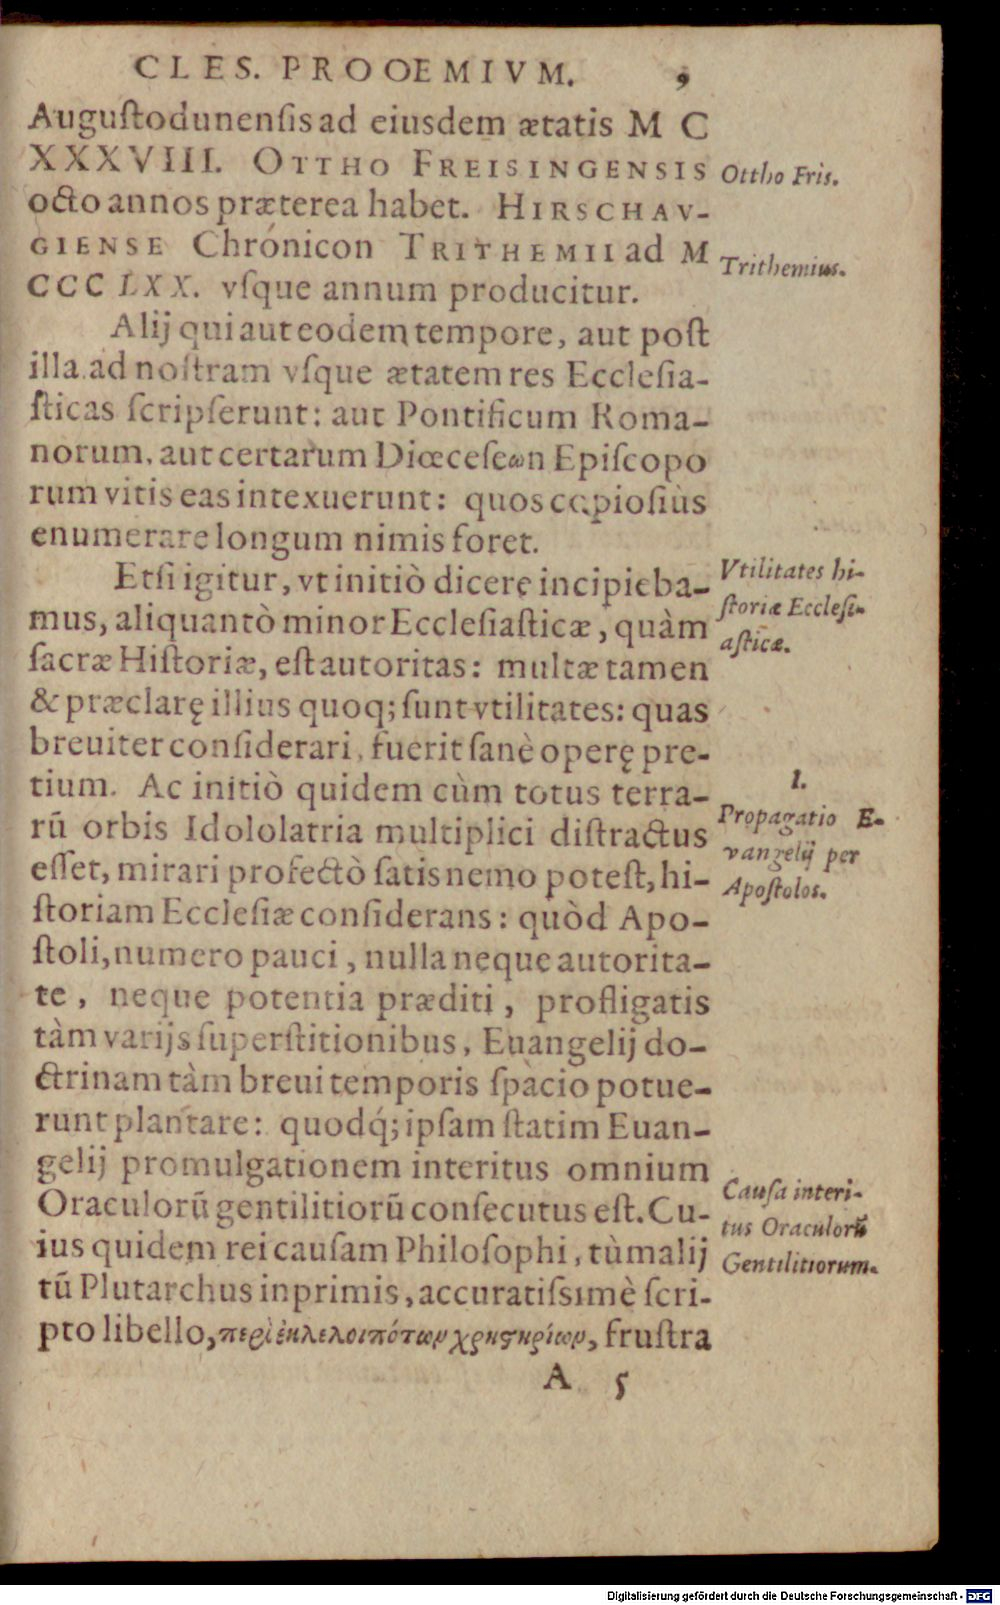 CLES. PROOEMIVM. 9
Auguſtodunenſis ad eiusdem ætatis M C
XXXVIII. OTTHO FREISINGENSIS
Ottho Fris.
octo annos præterea habet. HIRSCHAV-
GIENSE Chrónicon TRITHEMII ad M
Trithemius.
CCC LXX. vſque annum producitur.
Alij qui aut eodem tempore, aut poſt
illa ad noſtram vſque ætatem res Eccleſia-
ſticas ſcripſerunt: aut Pontificum Roma-
norum, aut certarum Diœceseωn Epiſcopo
rum vitis eas intexuerunt: quos copioſiùs
enumerare longum nimis foret.
Etſi igitur, vt initiò dicere incipieba-
Vtilitates hi-
ſtoriæ Eccleſi-
aſticæ.
mus, aliquantò minor Eccleſiaſticæ, quàm
ſacræ Hiſtoriæ, eſt autoritas: multæ tamen
& præclarę illius quoq; ſunt vtilitates: quas
breuiter conſiderari, fuerit ſanè operę pre-
tium. Ac initiò quidem cùm totus terra-
I.
Propagatio E-
vangelij per
Apoſtolos.
rũ orbis Idololatria multiplici diſtractus
eſſet, mirari profectò ſatis nemo poteſt, hi-
ſtoriam Eccleſiæ conſiderans: quòd Apo-
ſtoli, numero pauci, nulla neque autorita-
te, neque potentia præditi, profligatis
tàm varijs ſuperſtitionibus, Euangelij do-
ctrinam tàm breui temporis ſpacio potue-
runt plantare: quodq́; ipſam ſtatim Euan-
gelij promulgationem interitus omnium
Oraculorũ gentilitiorũ conſecutus eſt. Cu-
Cauſa interi-
tus Oraculorũ
Gentilitiorum.
ius quidem rei cauſam Philoſophi, tùm alij
tũ Plutarchus inprimis, accuratiſsimè ſcri-
pto libello, περὶ ἐκλελοιπότων χρηστηρίων, fruſtra
A 5
Digitalisierung gefördert durch die Deutsche Forschungsgemeinschaft - DFG